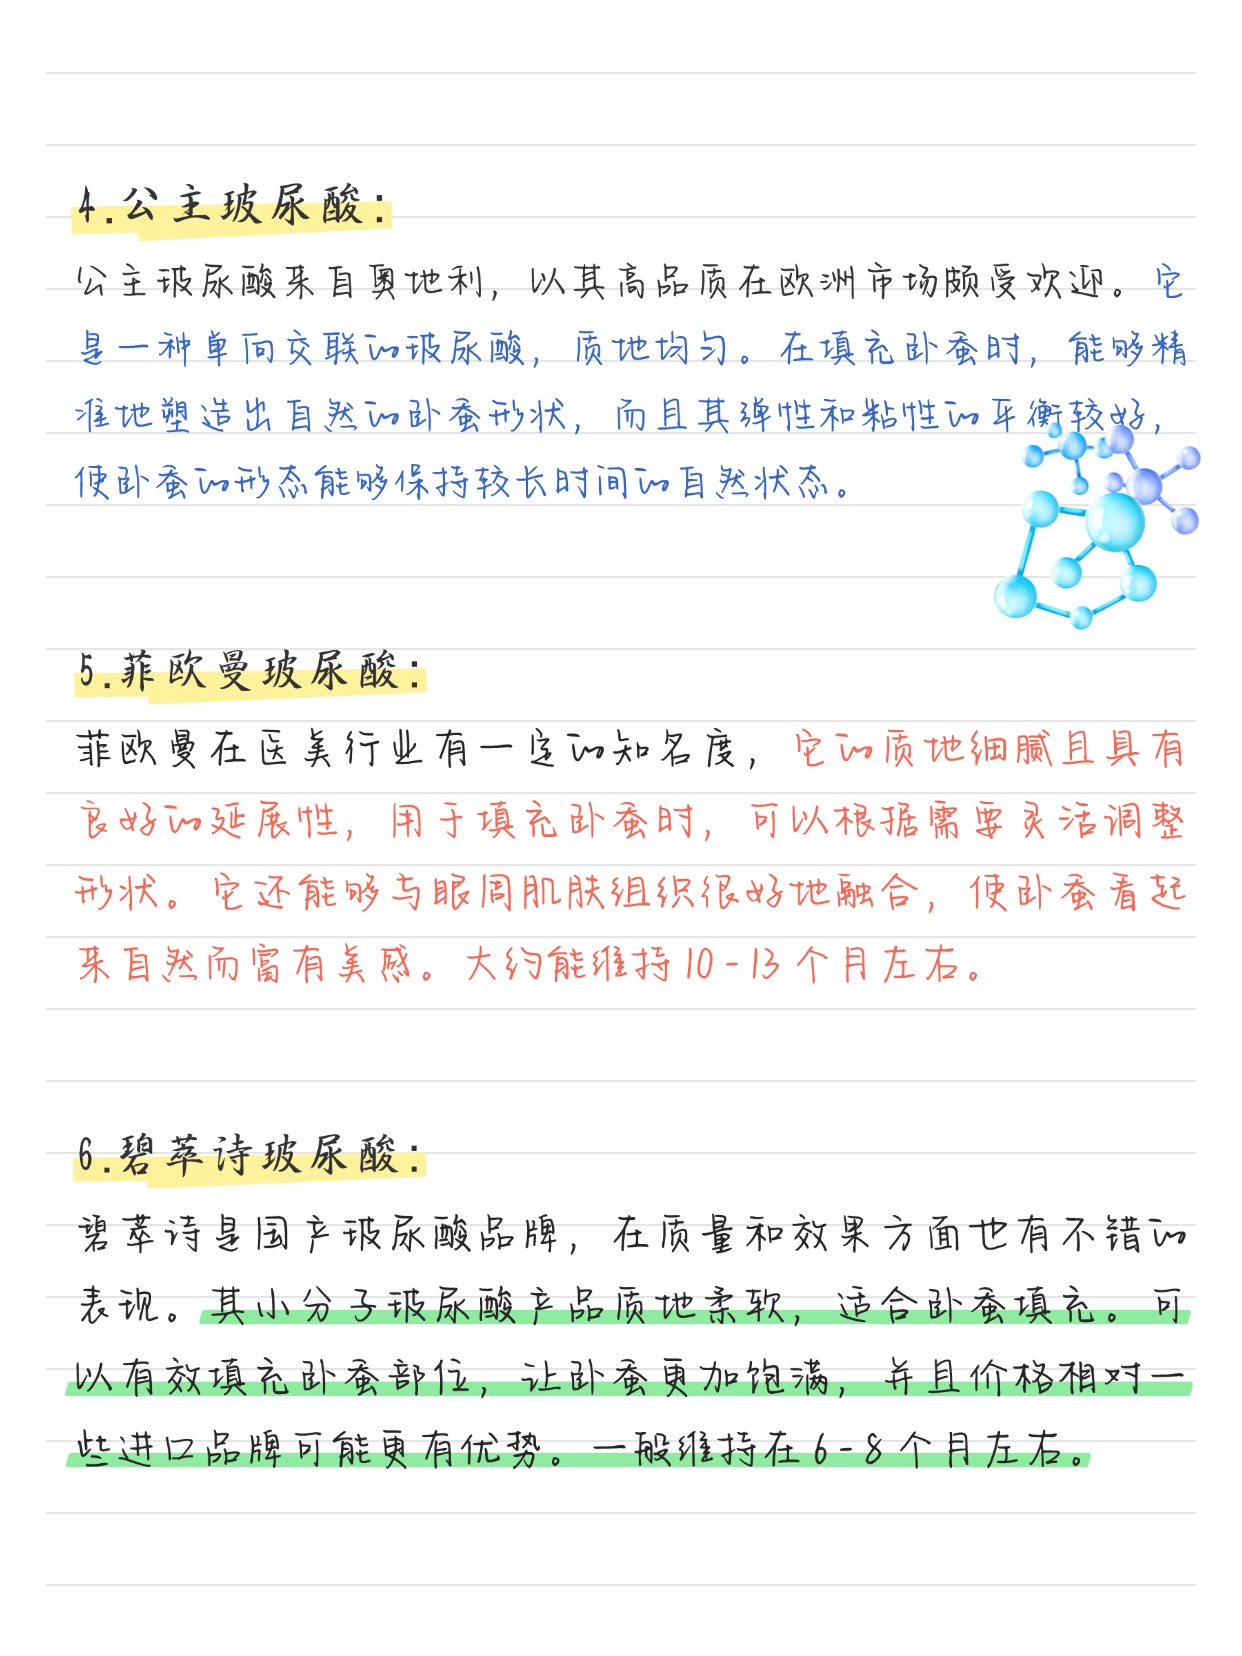 4.公主玻尿酸:
公主玻尿酸来自奥地利，以其高品质在欧洲市场颇受欢迎。它
是一种单向交联的玻尿酸，质地均匀。在填充卧蚕时，能够精
准地塑造出自然的卧蚕形状，而且其弹性和粘性的平衡较好，
使卧蚕的形态能够保持较长时间的自然状态。
5.菲欧曼玻尿酸:
菲欧曼在医美行业有一定的知名度，它的质地细腻且具有
良好的延展性，用于填充卧蚕时，可以根据需要灵活调整
形状。它还能够与眼周肌肤组织很好地融合，使卧蚕看起
来自然而富有美感。大约能维持10-13个月左右。
6.碧萃诗玻尿酸:
碧萃诗是国产玻尿酸品牌，在质量和效果方面也有不错的
表现。其小分子玻尿酸产品质地柔软，适合卧蚕填充。可
以有效填充卧蚕部位，让卧蚕更加饱满，并且价格相对一
些进口品牌可能更有优势。一般维持在6-8个月左右。